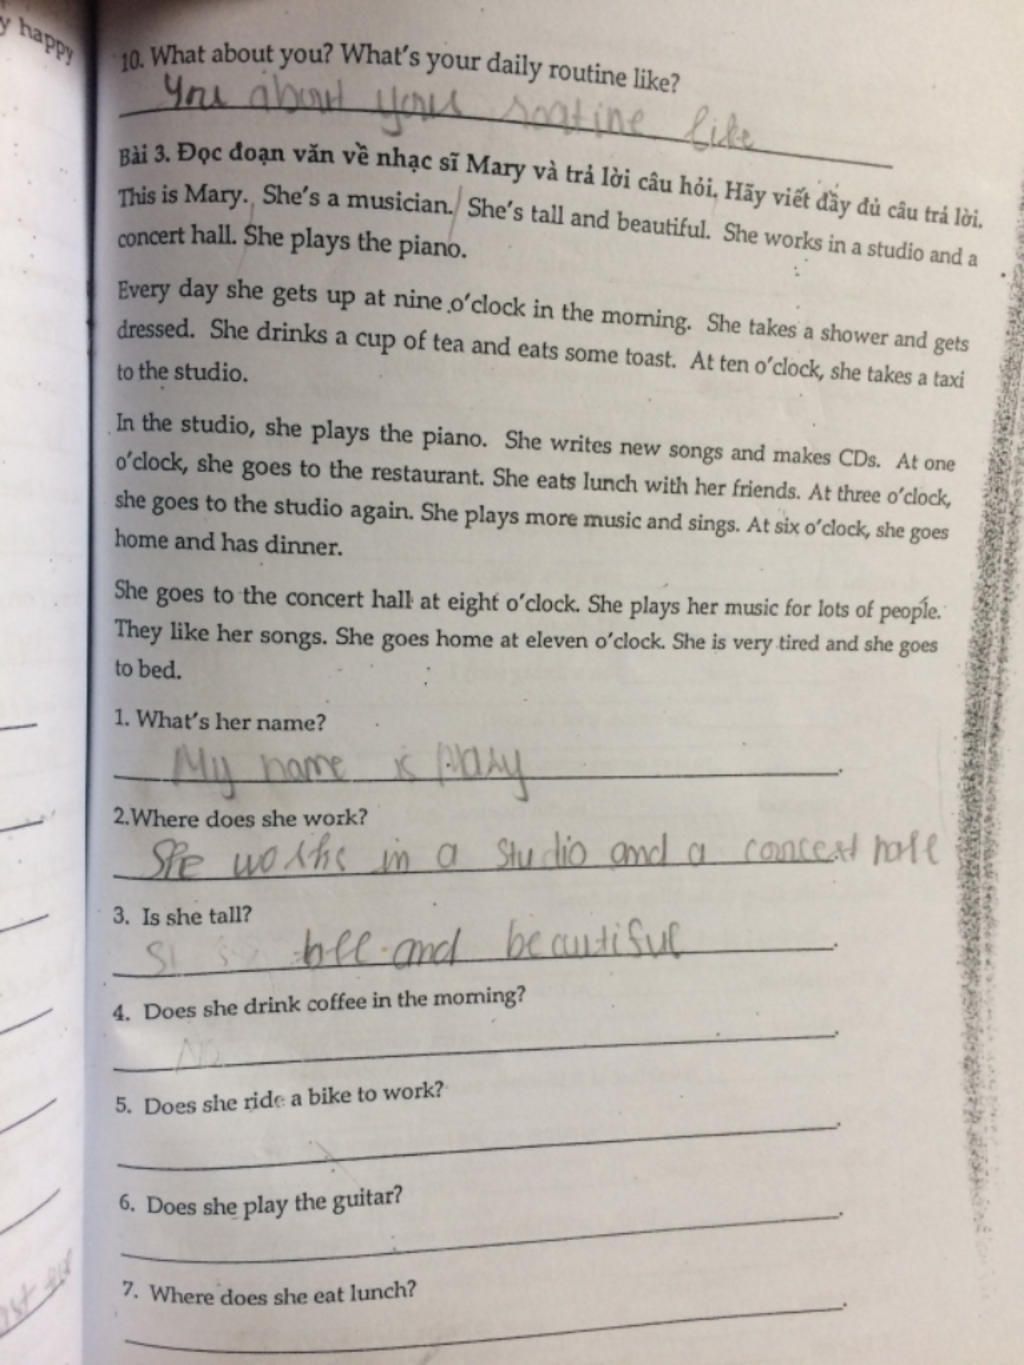 y happy
10. What about you? What's your daily routine like?
You about your like
Bài 3. Đọc đoạn văn về nhạc sĩ Mary và trả lời câu hỏi. Hãy viết đầy đủ câu trả lời.
This is Mary. She's a musician. She's tall and beautiful. She works in a studio and a
concert hall. She plays the piano.
Every day she gets up at nine o'clock in the morning. She takes a shower and gets
dressed. She drinks a cup of tea and eats some toast. At ten o'clock, she takes a taxi
to the studio.
In the studio, she plays the piano. She writes new songs and makes CDs. At one
o'clock, she goes to the restaurant. She eats lunch with her friends. At three o'clock,
she goes to the studio again. She plays more music and sings. At six o'clock, she goes
home and has dinner.
She goes to the concert hall at eight o'clock. She plays her music for lots of people.
They like her songs. She goes home at eleven o'clock. She is very tired and she goes
to bed.
1. What's her name?
My name is Mary
2.Where does she work?
She works in a studio and a concert hall
3. Is she tall?
tall and beautiful
4. Does she drink coffee in the morning?
No
5. Does she ride a bike to work?
6. Does she play the guitar?
7. Where does she eat lunch?